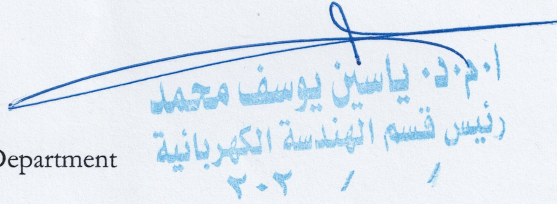 ا.م.د. ياسين يوسف محمد
رئيس قسم الهندسة الكهربائية
Department
/ / ٢٠٢